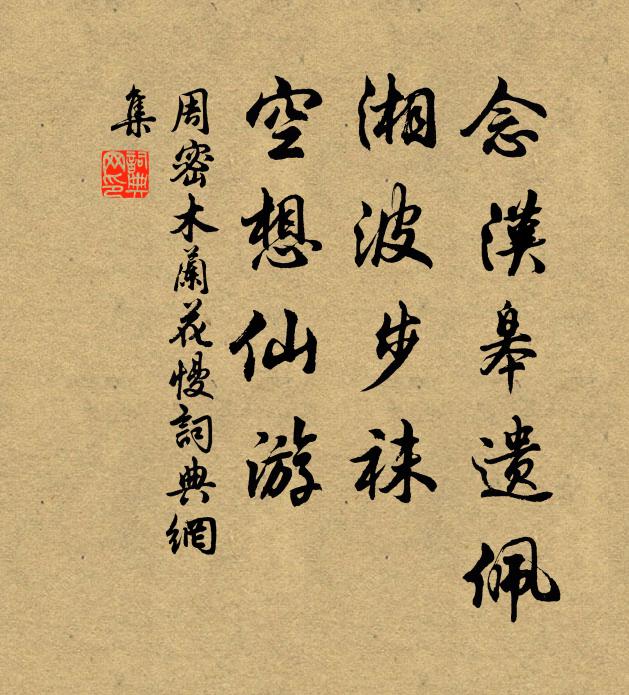 念漢皋遗佩
湘波步袜
空想仙游
周密木蘭花慢詞典網
集
詞典网印